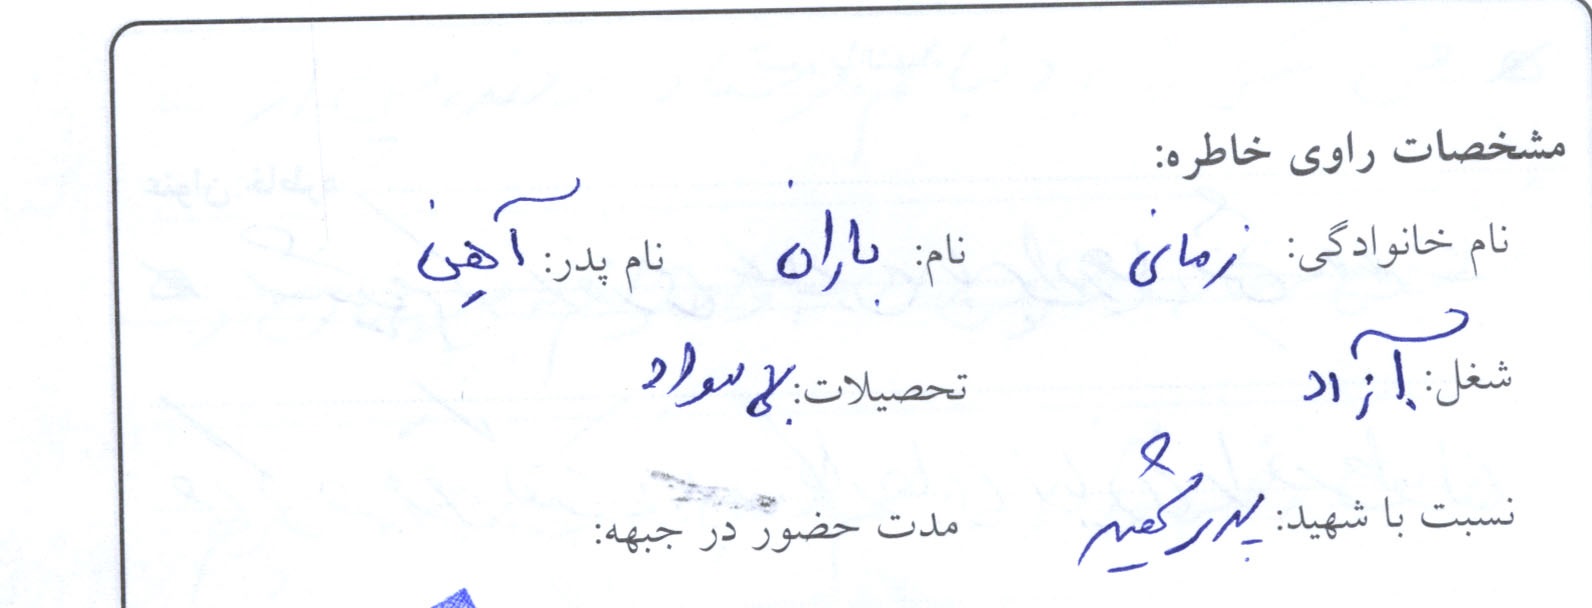 مشخصات راوی خاطره:
نام خانوادگی: زمانی نام: باران نام پدر: آهن
شغل: آزاد تحصیلات: بی سواد
نسبت با شهید: پدر شهید مدت حضور در جبهه: